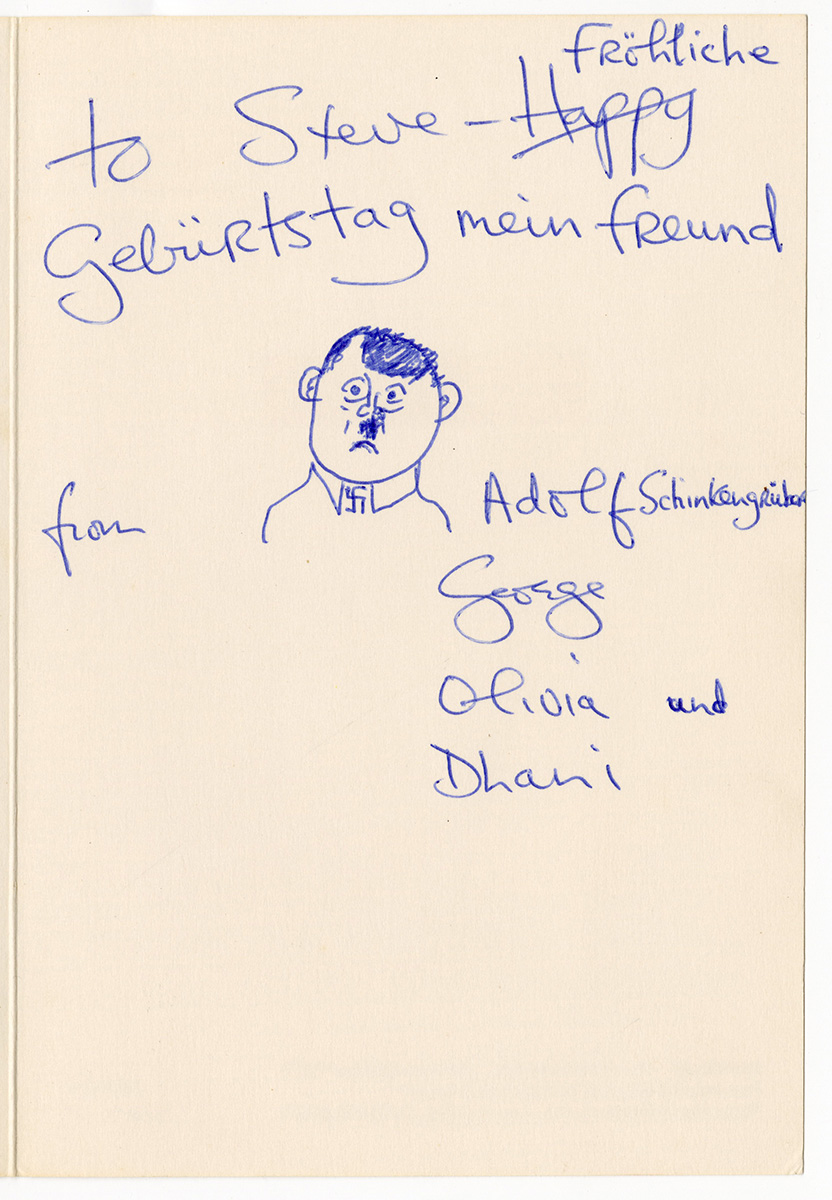 fröhliche
to Steve - Happy
Gebürtstag mein freund
from
Adolf Schinkengrüber
George
Olivia und
Dhani